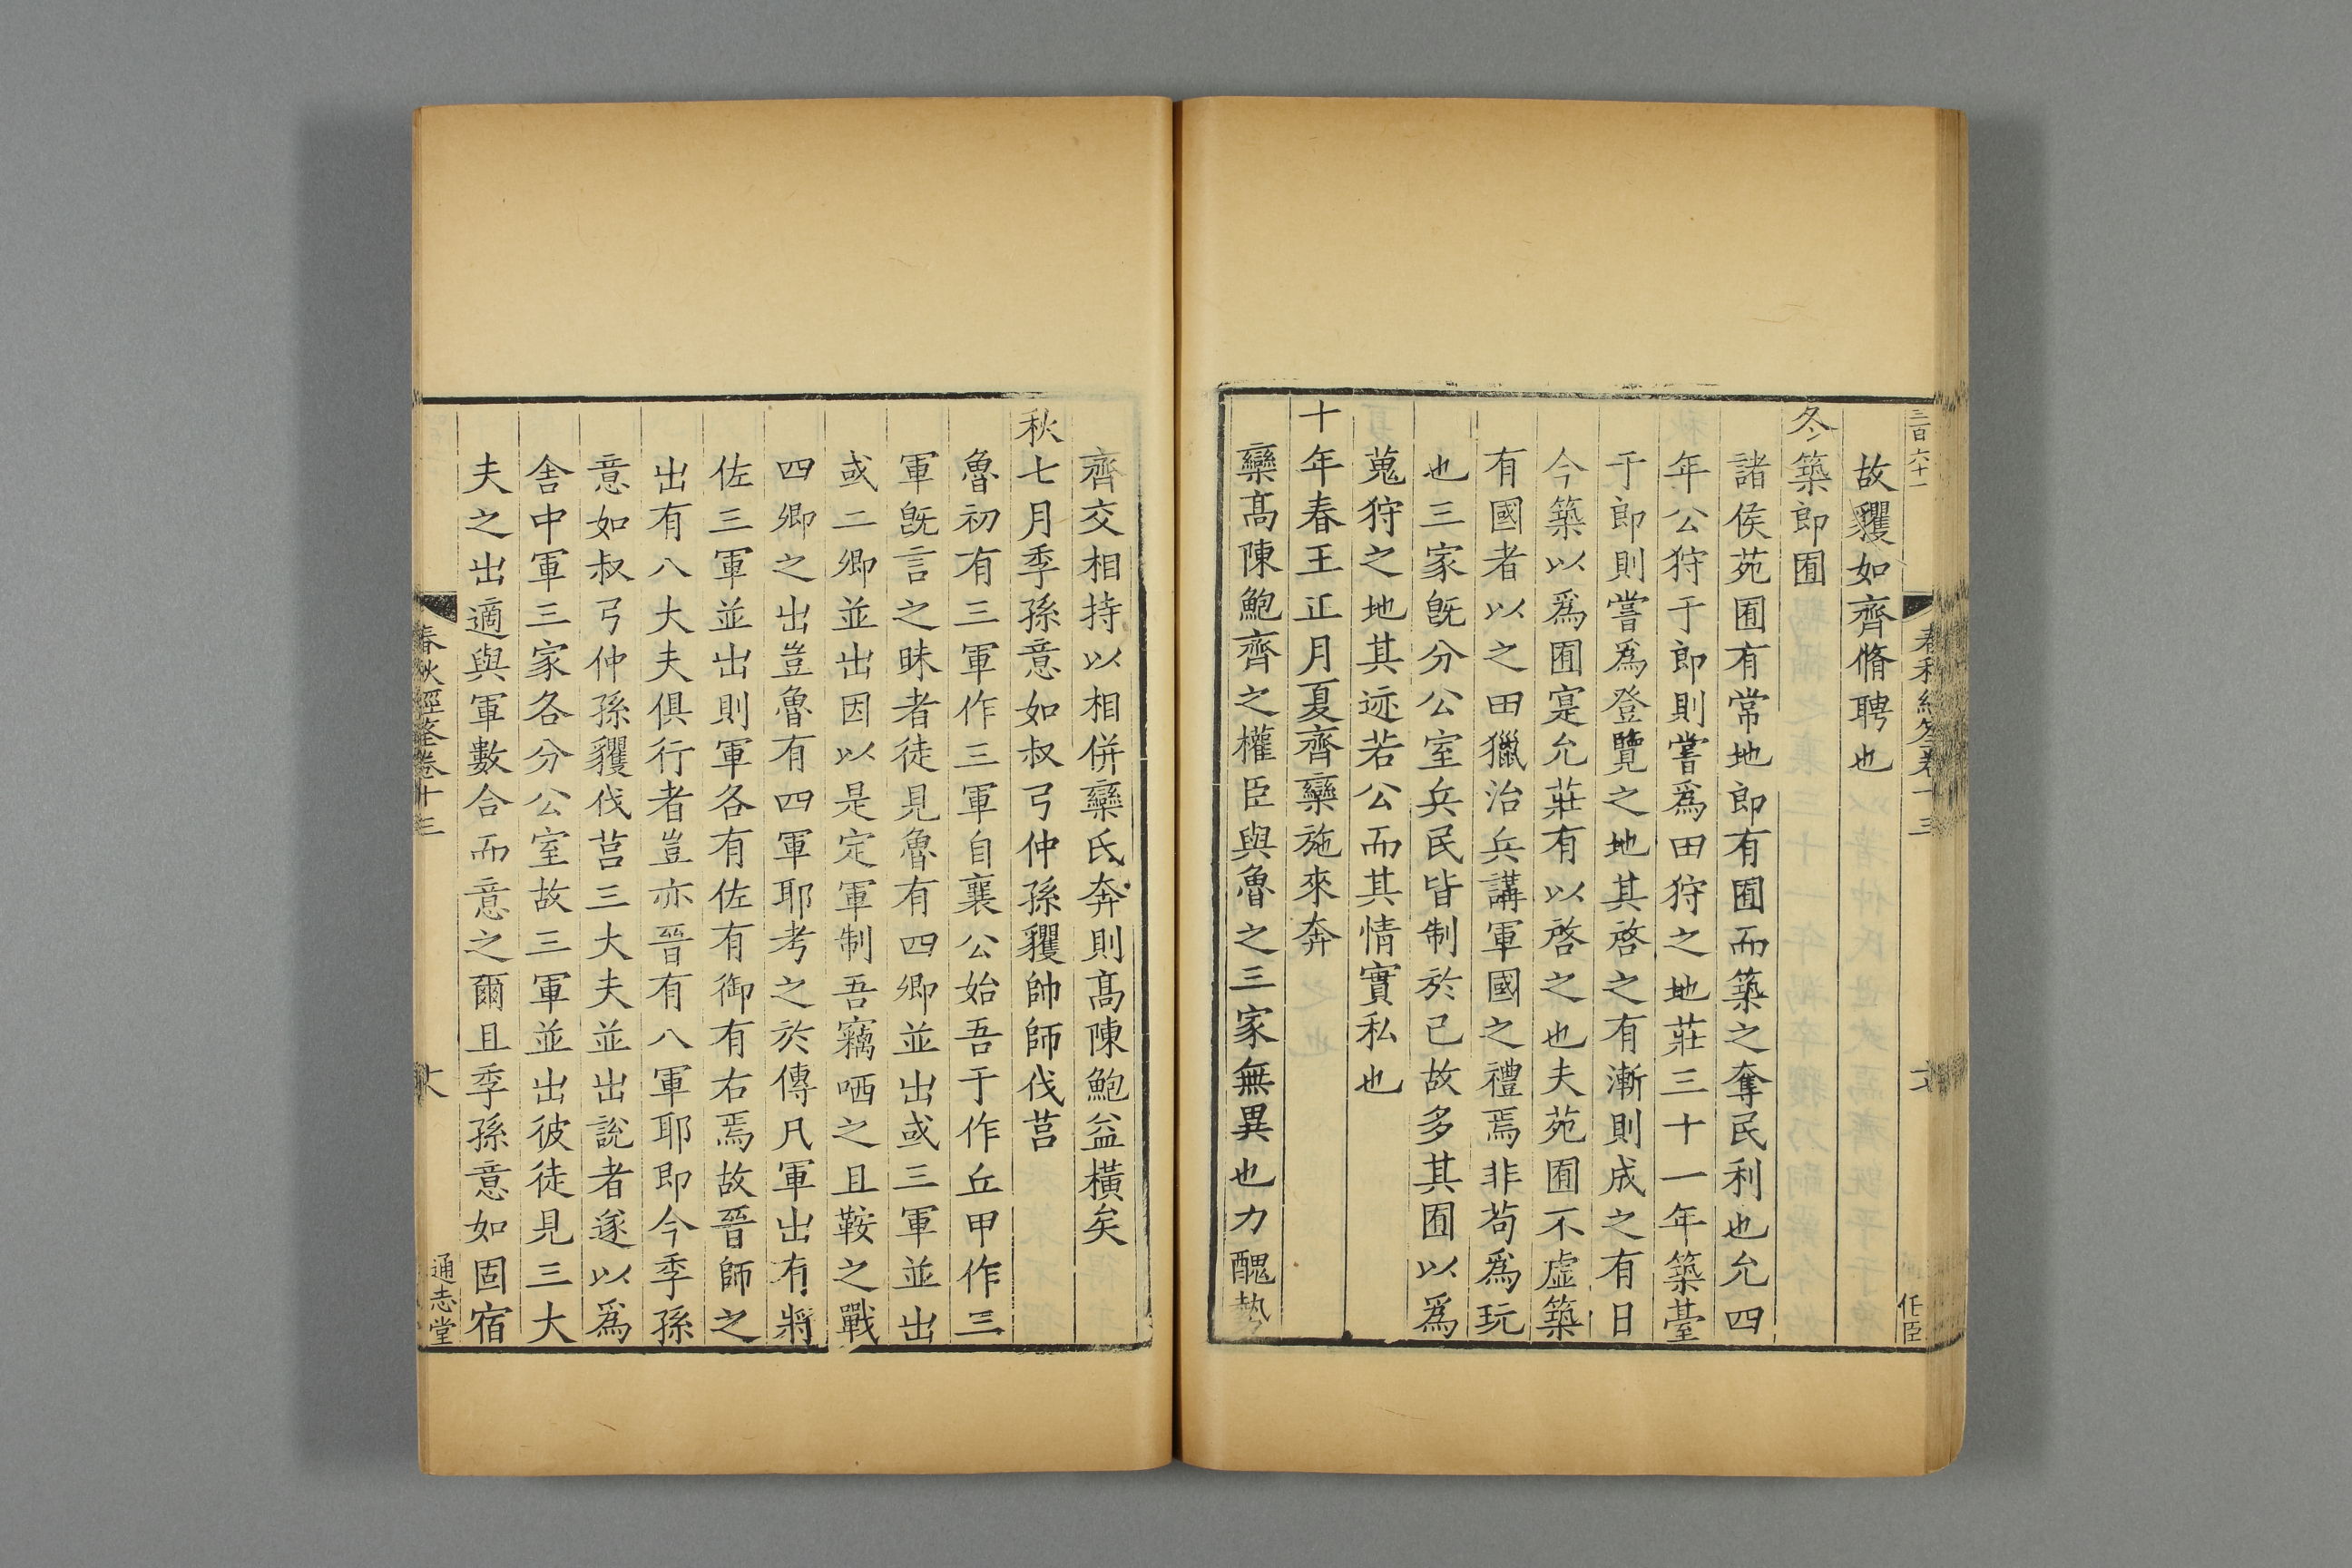 三百六十一
春秋經筌卷十三
任臣
故貜如齊脩聘也
冬築郎囿
諸侯苑囿有常地郎有囿而築之奪民利也允四
年公狩于郎則嘗爲田狩之地莊三十一年築臺
于郎則嘗爲登覽之地其啓之有漸則成之有日
今築以爲囿寔允莊有以啓之也夫苑囿不虛築
有國者以之田獵治兵講軍國之禮焉非苟爲玩
也三家旣分公室兵民皆制於已故多其囿以爲
蒐狩之地其迹若公而其情實私也
十年春王正月夏齊欒施來奔
欒高陳鮑齊之權臣與魯之三家無異也力醜埶
齊交相持以相併欒氏奔則高陳鮑益橫矣
秋七月季孫意如叔弓仲孫貜帥師伐莒
魯初有三軍作三軍自襄公始吾于作丘甲作三
軍旣言之昧者徒見魯有四卿並出或三軍並出
或二卿並出因以是定軍制吾竊哂之且鞍之戰
四卿之出豈魯有四軍耶考之於傳凡軍出有將
佐三軍並出則軍各有佐有御有右焉故晉師之
出有八大夫俱行者豈亦晉有八軍耶即今季孫
意如叔弓仲孫貜伐莒三大夫並出說者遂以爲
舍中軍三家各分公室故三軍並出彼徒見三大
夫之出適與軍數合而意之爾且季孫意如固宿
春秋經筌卷十三
通志堂